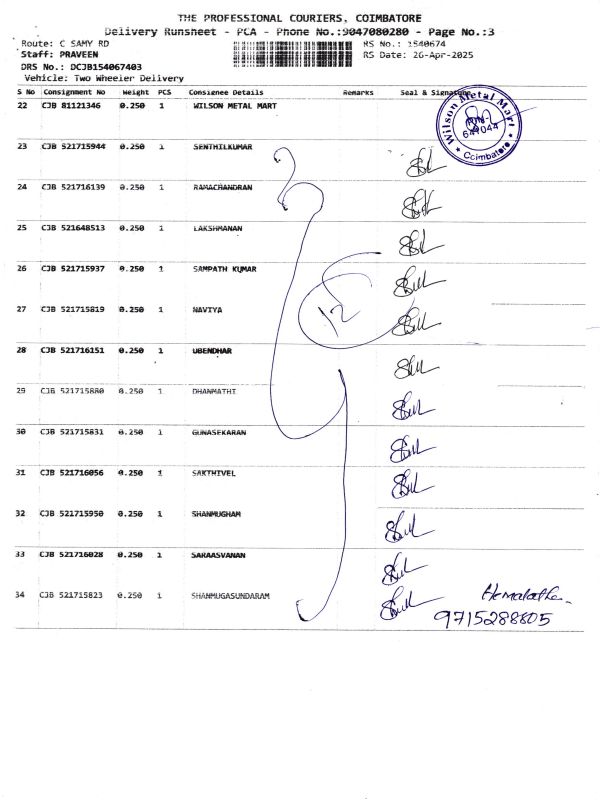 THE PROFESSIONAL COURIERS, COIMBATORE
Delivery Runsheet - PCA - Phone No.:9047080280 - Page No.:3
Route: C SAMY RD RS No.: 1540674
Staff: PRAVEEN RS Date: 26-Apr-2025
DRS No.: DCJB154067403
Vehicle: Two Wheeler Delivery
S No Consignment No Weight PCS Consignee Details Remarks Seal & Signature
22 CJB 81121346 0.250 1 WILSON METAL MART
Wilson Metal Mart
641044
Coimbatore
23 CJB 521715944 0.250 1 SENTHILKUMAR
24 CJB 521716139 0.250 1 RAMACHANDRAN
25 CJB 521648513 0.250 1 LAKSHMANAN
26 CJB 521715937 0.250 1 SAMPATH KUMAR
27 CJB 521715819 0.250 1 NAVIYA
12
28 CJB 521716151 0.250 1 UBENDHAR
29 CJB 521715880 0.250 1 DHANMATHI
30 CJB 521715831 0.250 1 GUNASEKARAN
31 CJB 521716056 0.250 1 SAKTHIVEL
32 CJB 521715950 0.250 1 SHANMUGHAM
33 CJB 521716028 0.250 1 SARAASVANAN
34 CJB 521715823 0.250 1 SHANMUGASUNDARAM
Hemalatha
9715288805